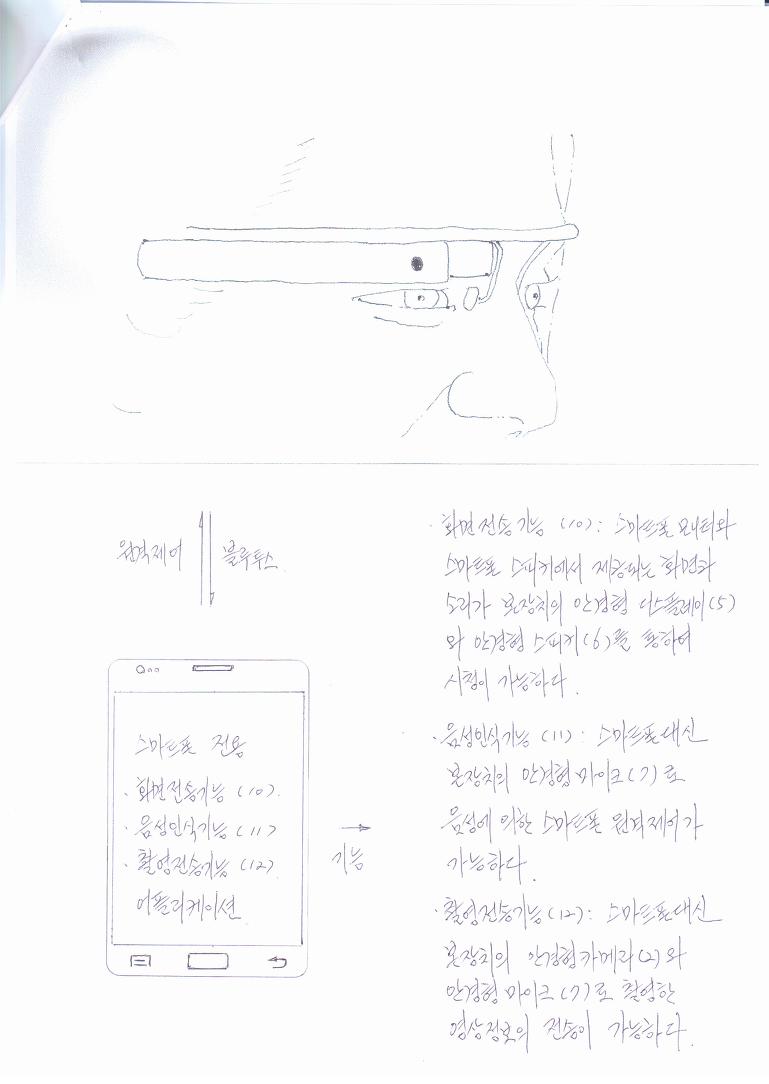 원격제어
블루투스
스마트폰 전용
· 화면전송기능 (10)
· 음성인식기능 (11)
· 촬영전송기능 (12)
어플리케이션
기능
· 화면전송기능 (10) : 스마트폰 모니터와
스마트폰 스피커에서 제공되는 화면과
소리가 본장치의 안경형 디스플레이(5)
와 안경형 스피커(6)를 통하여
시청이 가능하다.
· 음성인식기능 (11) : 스마트폰대신
본장치의 안경형마이크(7)로
음성에 의한 스마트폰 원격제어가
가능하다.
· 촬영전송기능(12) : 스마트폰대신
본장치의 안경형카메라(2)와
안경형마이크(7)로 촬영한
영상정보의 전송이 가능하다.